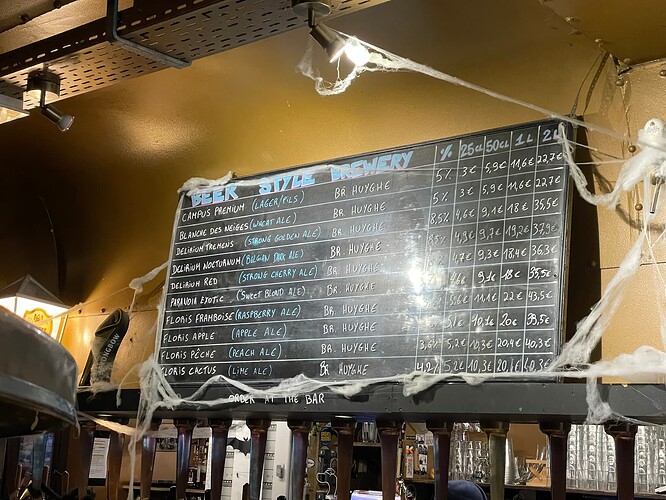 BEER STYLE BREWERY % 25cl 50cl 1L 2L
CAMPUS PREMIUM (LAGER/PILS) BR. HUYGHE 5% 3€ 5,9€ 11,6€ 22,7€
BLANCHE DES NEIGES (WHEAT ALE) BR. HUYGHE 5% 3€ 5,9€ 11,6€ 22,7€
DELIRIUM TREMENS (STRONG GOLDEN ALE) BR. HUYGHE 8,5% 4,6€ 9,1€ 18€ 35,5€
DELIRIUM NOCTURNUM (BELGIAN DARK ALE) BR. HUYGHE 4,9€ 9,7€ 19,2€ 37,9€
DELIRIUM RED (STRONG CHERRY ALE) BR. HUYGHE 4,7€ 9,3€ 18,4€ 36,3€
PARANOIA EXOTIC (SWEET BLOND ALE) BR. HUYGHE 9,1€ 18€ 35,5€
FLORIS FRAMBOISE (RASPBERRY ALE) BR. HUYGHE 5,6€ 11,1€ 22€ 43,5€
FLORIS APPLE (APPLE ALE) BR. HUYGHE 5,1€ 10,1€ 20€ 39,5€
FLORIS PÊCHE (PEACH ALE) BR. HUYGHE 3,6% 5,2€ 10,3€ 20,4€ 40,3€
FLORIS CACTUS (LIME ALE) BR. HUYGHE 4,2% 5,2€ 10,3€ 40,3€
ORDER AT THE BAR